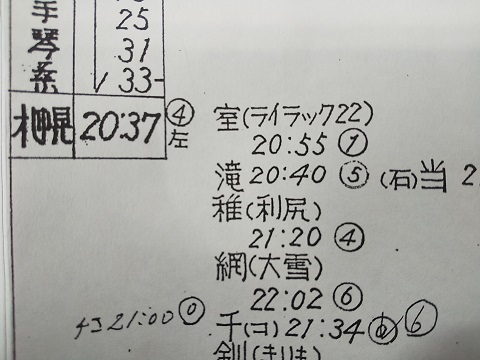 手 25
琴 31
桑 33
札幌 20:37 ④左
室(ライラック22)
20:55 ①
滝 20:40 ⑤ (石)当 2
稚(利尻)
21:20 ④
網(大雪)
22:02 ⑥
チコ 21:00 ⓪
千(コ) 21:34 ⑥
釧(まりも